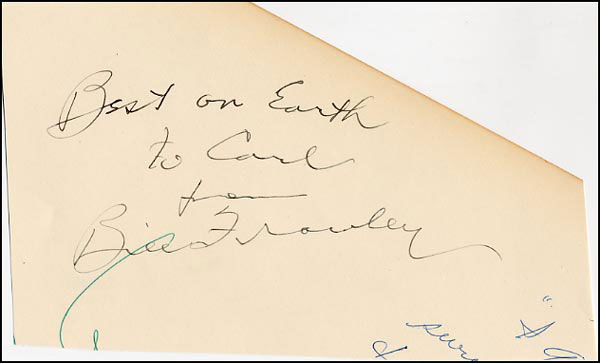 Best on Earth
to Carl
from
Bill Frawley